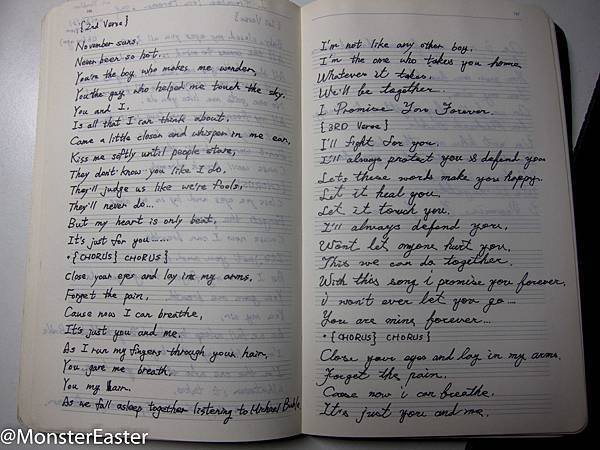 {2nd Verse}
November suns,
Never been so hot,
You're the boy who makes me wonder,
You the guy who helped me touch the sky.
You and I,
Is all that I can think about,
Came a little closer and whisper in me ear,
Kiss me softly until people stare,
They don't know you like I do,
They'll judge us like we're fools,
They'll never do...
But my heart is only beat,
It's just for you......
*{CHORUS} CHORUS}
Close your eyes and lay in my arms,
Forget the pain,
Cause now I can breathe,
It's just you and me,
As I run my fingers through your hair,
You gave me breath,
You my
As we fall asleep together listening to Michael Buble
I'm not like any other boy,
I'm the one who takes you home,
Whatever it takes,
We'll be together...
I Promise You Forever.
{3RD Verse}
I'll fight for you,
I'll always protect you & defend you
Lets these words make you happy.
Let it heal you,
Let it touch you,
I'll always defend you,
Wont let anyone hurt you,
This we can do together.
With this song i promise you forever,
i won't ever let you go....
You are mine forever...
*{CHORUS} CHORUS}
Close your eyes and lay in my arms.
Forget the pain.
Cause now i can breathe.
It's just you and me,
@MonsterEaster